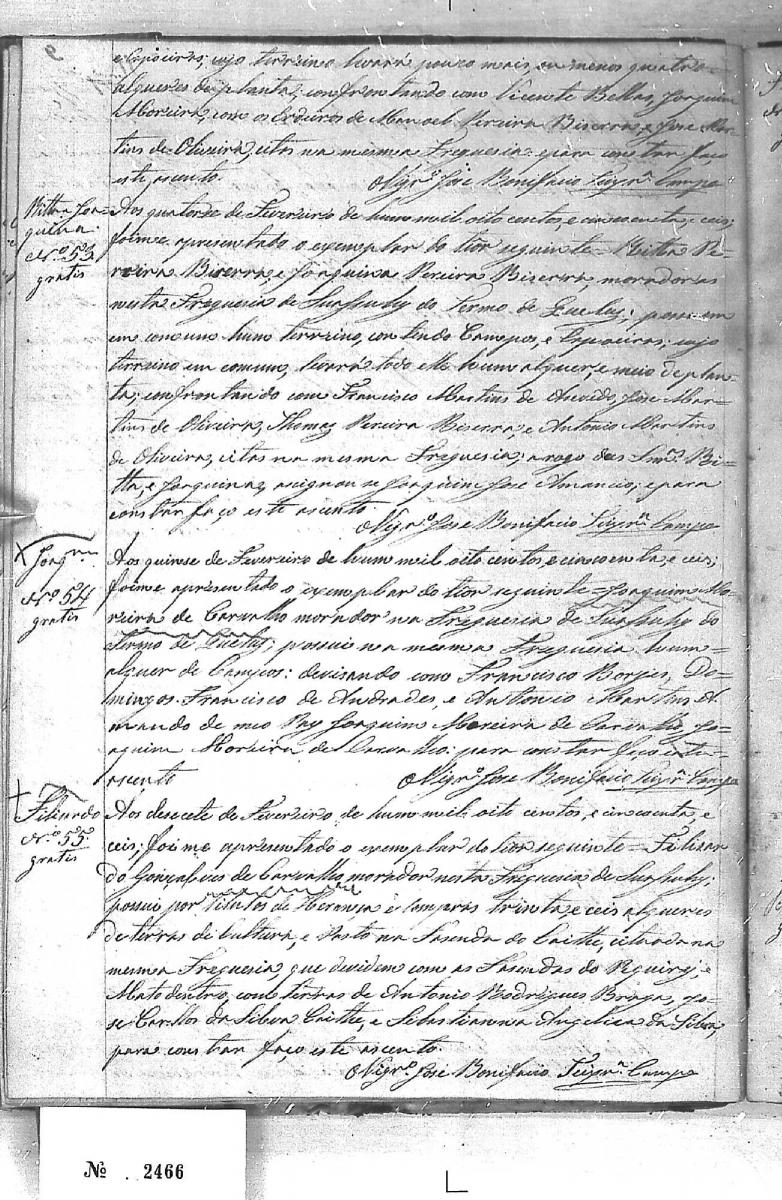 e Capoeiras; cujo terreino levará pouco mais, ou menos quatro
alqueres de planta; confrontando com Vicente Bellas, Joaquim
Moreira, com os Erdeiros de Manoel Pereira Biserra, e Jose Mar-
tins de Oliveira, citas na mesma Freguesia: para constar faço
este ascento. O Vigr.º José Bonifacio
Ritta e Joa-
quina
N.º 53
gratis
Aos quatorse de Fevereiro de hum mil oito centos, e cincoenta, e ceis;
foime apresentado o exemplar do tior seguinte = Ritta Pe-
reira Biserra, e Joaquina Pereira Biserra, moradoras
nesta Freguesia de Suassuhy do Termo de Queluz; possuem
em comum hum terreino, contendo Campos, e Capoeiras; cujo
terreino em comum, levará todo elle hum alquer, e meio de plan-
ta; confrontando com Francisco Martins de Asevedo, Jose Mar-
tins de Oliveira, Thomaz Pereira Biserra, e Antonio Martins
de Oliveira, citas na mesma Freguesia; a rogo das Snr.as Ri-
tta, e Joaquina, asignou se Joaquim José Amancio; e para
constar faço este ascento. O Vigr.º Jose Bonifacio
Joaq.m
N.º 54
gratis
Aos quinse de Fevereiro de hum mil oito centos, e cincoenta, e ceis;
foime apresentado o exemplar do tior seguinte = Joaquim Mo-
reira de Carvalho morador na Freguesia de Suassuhy do
Termo de Queluz; possui na mesma Freguesia hum
alquer de Campos: devisando com Francisco Borges, Do-
mingos Francisco de Andrades, e Antonio Martins A
mando de meo Pay Joaquim Moreira de Carvalho, Jo-
aquim Moreira de Carvalho: para constar faço este
ascento O Vigr.º Jose Bonifacio
Filisardo
N.º 55
gratis
Aos desecete de Fevereiro de hum mil oito centos, e cincoenta, e
ceis, foi me apresentado o exemplar do tior seguinte = Filisar
do Gonçalves de Carvalho morador nesta Freguesia de Suassuhy;
possui por Titulos de Heransa e Compras trinta e ceis alqueres
de terras de Cultura, e Pasto na Fasenda do Caitte, citoada na
mesma Freguesia que devidem com as Fasendas do Piquiry, e
Mato dentro, com terras de Antonio Rodrigues Braga, Jo-
se Carllos da Silva Caitte, e Sebastianna Angelica da Silva,
para constar faço este ascento.
O Vigr.º Jose Bonifacio
Nº 2466